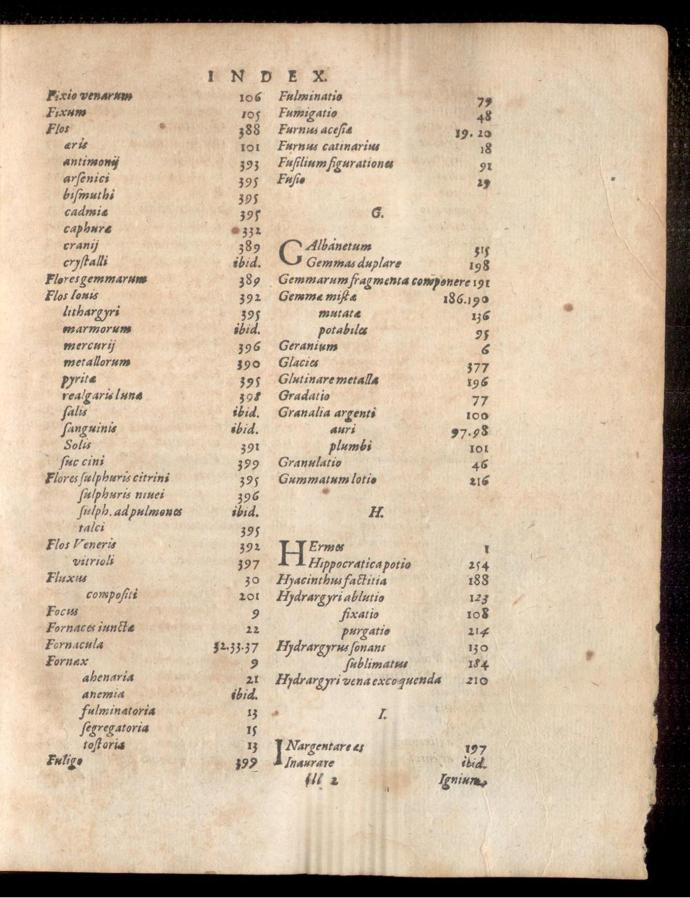 INDEX.
Fixio venarum 106
Fixum 105
Flos 388
æris 101
antimonij 393
arſenici 395
biſmuthi 395
cadmiæ 395
caphuræ 332
cranij 389
cryſtalli ibid.
Flores gemmarum 389
Flos Iouis 392
lithargyri 395
marmorum ibid.
mercurij 396
metallorum 390
pyritæ 395
realgaris lunæ 398
ſalis ibid.
ſanguinis ibid.
Solis 391
ſuccini 399
Flores ſulphuris citrini 395
ſulphuris niuei 396
ſulph. ad pulmones ibid.
talci 395
Flos Veneris 392
vitrioli 397
Fluxus 30
compoſiti 201
Focus 9
Fornaces iunctæ 22
Fornacula 32.33.37
Fornax 9
ahenaria 21
anemia ibid.
fulminatoria 13
ſegregatoria 15
toſtoria 13
Fuligo 399
Fulminatio 79
Fumigatio 48
Furnus aceſiæ 19.20
Furnus catinarius 18
Fuſilium figurationes 91
Fuſio 29
G.
GAlbanetum 515
Gemmas duplare 198
Gemmarum fragmenta componere 191
Gemmæ miſtæ 186.190
mutatæ 136
potabiles 95
Geranium 6
Glacies 377
Glutinare metalla 196
Gradatio 77
Granalia argenti 100
auri 97.98
plumbi 101
Granulatio 46
Gummatum lotio 216
H.
HErmes 1
Hippocratica potio 254
Hyacinthus factitia 188
Hydrargyri ablutio 123
fixatio 108
purgatio 214
Hydrargyrus ſonans 130
ſublimatus 184
Hydrargyri vena excoquenda 210
I.
INargentare æs 197
Inaurare ibid.
ſll 2 Ignium